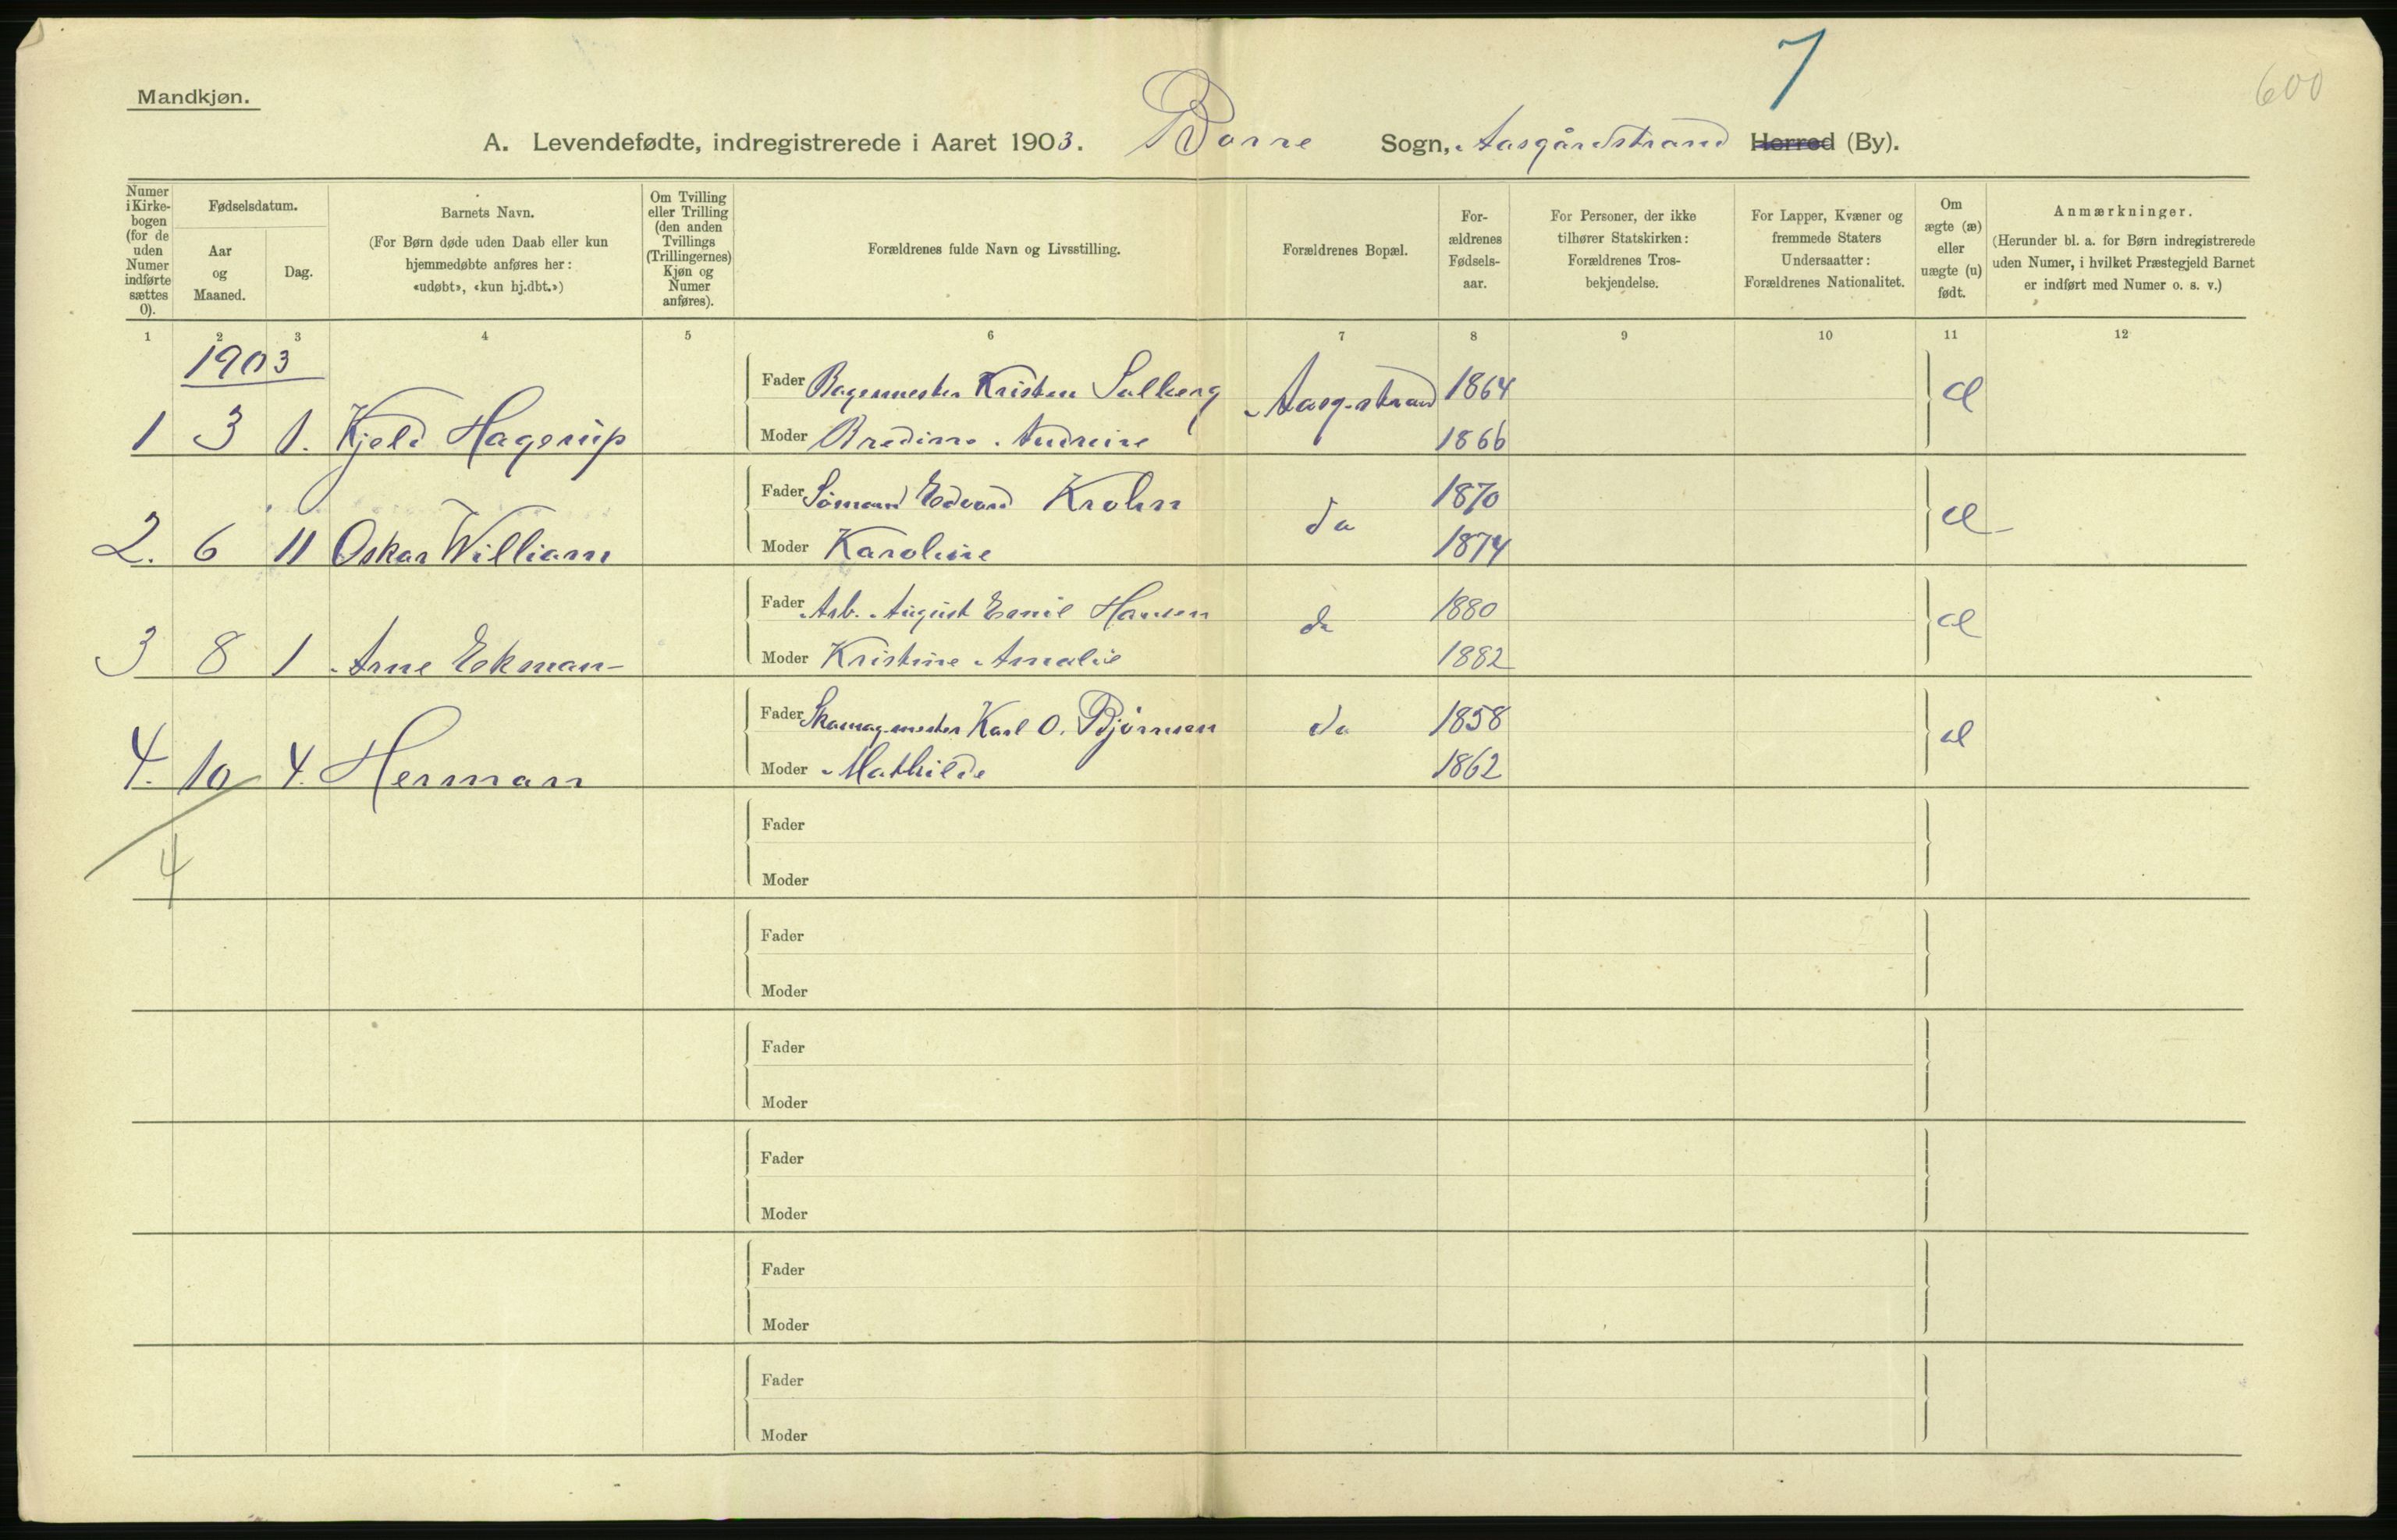 7
600
Mandkjøn.
A. Levendefødte, indregistrerede i Aaret 1903. Borre Sogn, Aasgårdstrand Herred (By).
Numer i Kirke-bogen (for de uden Numer indførte sættes 0).
Fødselsdatum.
Aar og Maaned.
Dag.
Barnets Navn.
(For Børn døde uden Daab eller kun hjemmedøbte anføres her: «udøbt», «kun hj.dbt.»)
Om Tvilling eller Trilling (den anden Tvillings (Trillingernes) Kjøn og Numer anføres).
Forældrenes fulde Navn og Livsstilling.
Forældrenes Bopæl.
For-ældrenes Fødsels-aar.
For Personer, der ikke tilhører Statskirken: Forældrenes Tros-bekjendelse.
For Lapper, Kvæner og fremmede Staters Undersaatter: Forældrenes Nationalitet.
Om ægte (æ) eller uægte (u) født.
Anmærkninger.
(Herunder bl. a. for Børn indregistrerede uden Numer, i hvilket Præstegjeld Barnet er indført med Numer o. s. v.)
1 2 3 4 5 6 7 8 9 10 11 12
1903
Fader Bagermester Kristen Solberg Aasg.strand 1864 æ
1 3 1. Kjeld Hagerup Moder Andrine 1866
Fader Sømand Edvard Krohn do 1870 æ
2. 6 11 Oskar William Moder Karoline 1874
Fader Arb. August Emil Hansen do 1880 æ
3 8 1 Arne Ekman Moder Kristine Amalie 1882
Fader Skomagermester Karl O. Bjørnsen do 1858 æ
4. 10 4. Herman Moder Mathilde 1862
4
Fader
Moder
Fader
Moder
Fader
Moder
Fader
Moder
Fader
Moder
Fader
Moder